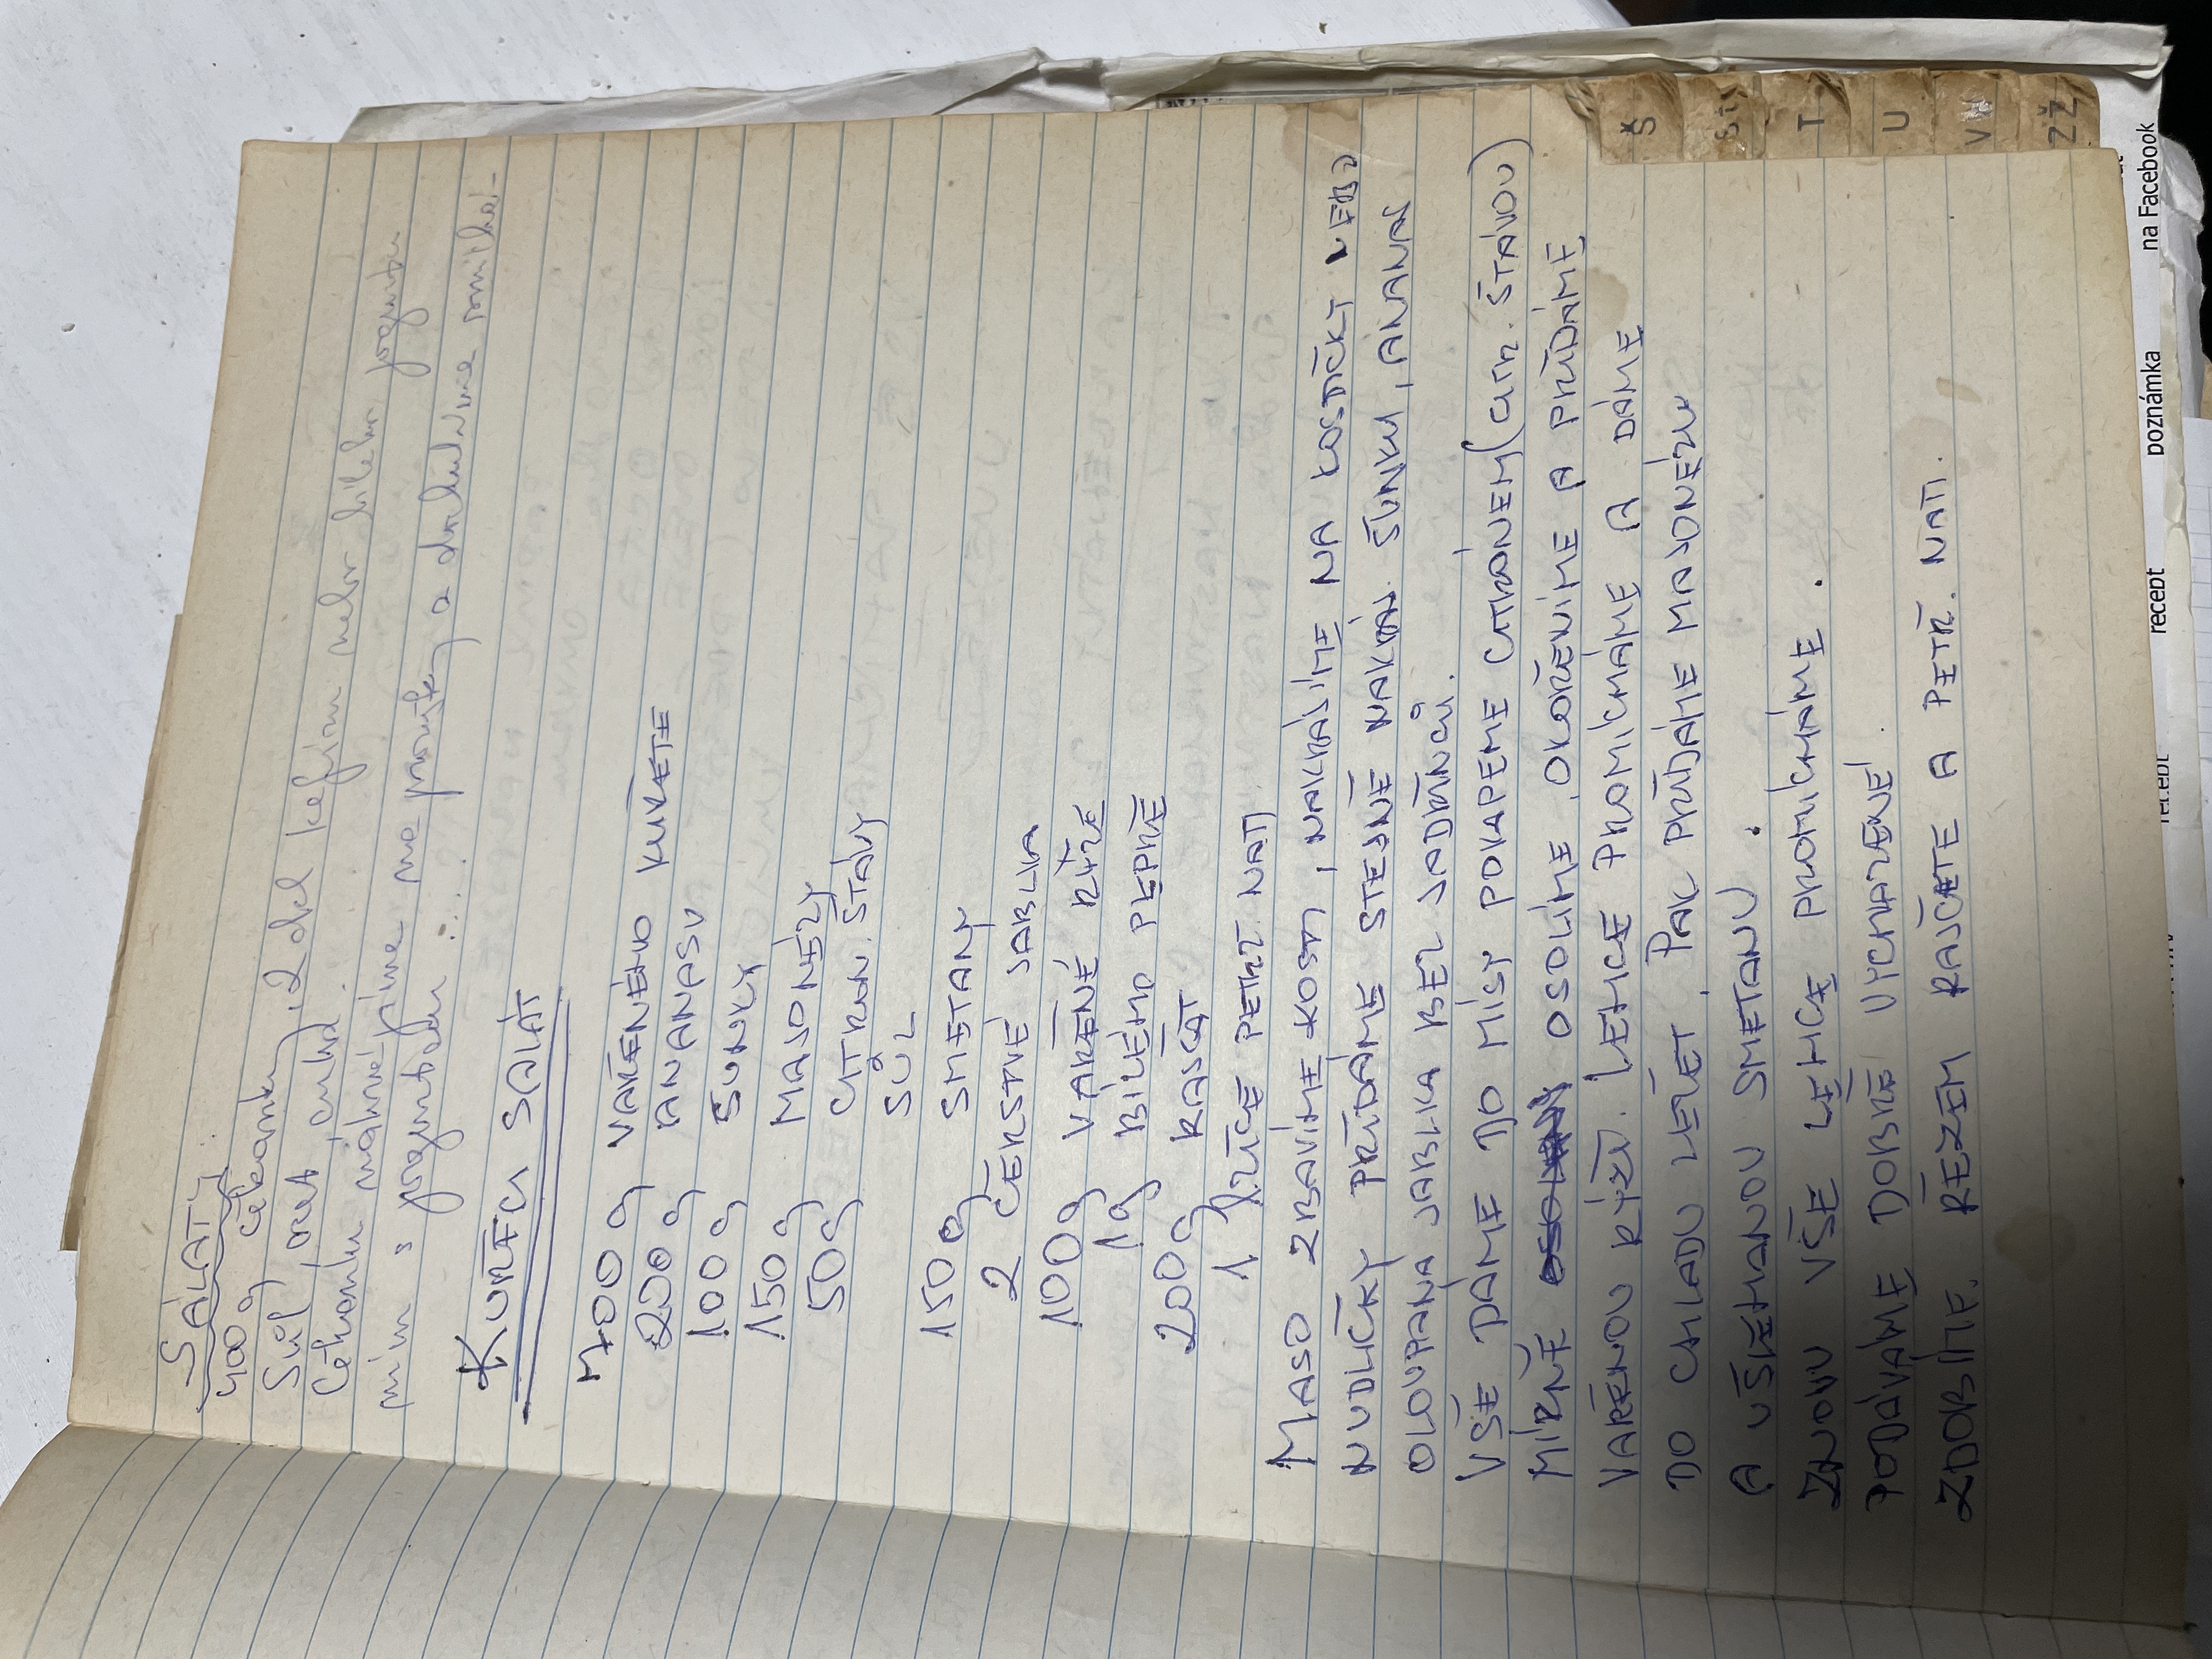 SALÁTY
400 g čekanky, 2 dcl kefíru nebo bílého jogurtu
Sůl, ocet, cukr.
Čekanku nakrájíme na proužky a dochutíme smíchá-
ním s jogurtem ....
KUŘECÍ SALÁT
700 g VAŘENÉHO KUŘETE
200 g ANANASU
100 g ŠUNKY
150 g MAJONÉZY
50 g CITRON. ŠTÁVY
SŮL
150 g SMETANY
2 ČERSTVÉ JABLKA
100 g VAŘENÉ RÝŽE
1 g BÍLÉHO PEPŘE
200 g RAJČAT
1 LŽÍCE PETRŽ. NATI
MASO ZBAVÍME KOSTÍ, NAKRÁJÍME NA KOSTIČKY NEBO
NUDLIČKY PŘIDÁME STEJNĚ NAKRÁJ. ŠUNKU, ANANAS
OLOUPANÁ JABLKA BEZ JADŘINCŮ.
VŠE DÁME DO MÍSY POKAPEME CITRÓNEM (CITR. ŠTÁVOU)
MÍRNĚ OSOLÍME, OKOŘENÍME A PŘIDÁME
VAŘENOU RÝŽI. LEHCE PROMÍCHÁME A DÁME
DO CHLADU LEŽET. PAK PŘIDÁME MAJONÉZU
A UŠLEHANOU SMETANU.
ZNOVU VŠE LEHCE PROMÍCHÁME.
PODÁVÁME DOBŘE VYCHLAZENÉ.
ZDOBÍME. ŘEZEM RAJČETE A PETRŽ. NATI.
Š
ST
T
U
V W
Z Ž
recept
recept
poznámka
na Facebook